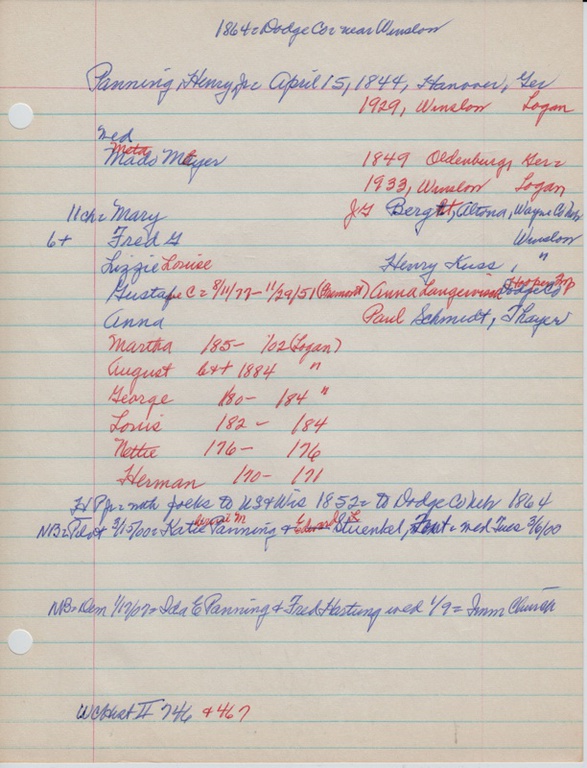 1864 = Dodge Co = near Winslow
Panning, Henry Jr = April 15, 1844, Hanover, Ger
1929, Winslow Logan
wed
Meta
Mado Meyer 1849 Oldenburg, Ger =
1933, Winslow Logan
11 ch = Mary J G Bergt, Altona, Wayne Co Neb
6+ Fred G Winslow
Lizzie Louise Henry Kuss, "
Hooper Twp
Gustave C = 8/11/77 - 11/29/51 (Fremont) Anna Langewisch Dodge Co
Anna Paul Schmidt, Thayer
Martha 185 - '02 (Logan)
August 6++ 1884 "
George 180 - 184 "
Louis 182 - 184
Nettie 176 - 176
Herman 170 - 171
H P Jr = with folks to US & Wis 1852 = to Dodge Co Neb 1864
NB = 3/15/00 = Katie Panning & Stuenkel, = wed Tues 3/6/00
NB = Dem 1/17/07 = Ida E Panning & Fred Hastung wed 1/9 = Imm Church
WC Hist II 746 & 467